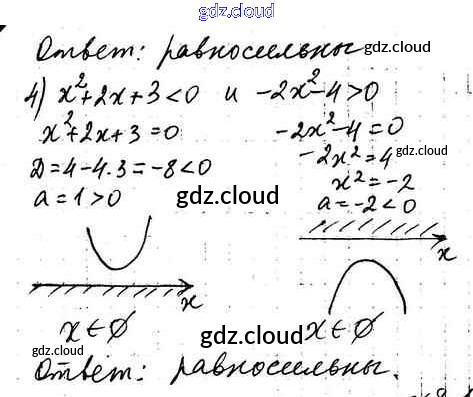 gdz.cloud
Ответ: равносильны gdz.cloud
4) x²+2x+3<0 и -2x²-4>0
x²+2x+3=0 -2x²-4=0
D=4-4·3=-8<0 -2x²=4 gdz.cloud
a=1>0 gdz.cloud x²=-2
a=-2<0
x
x
gdz.cloud
x∈∅ gdz.cloud x∈∅
gdz.cloud
Ответ: равносильны. gdz.cloud